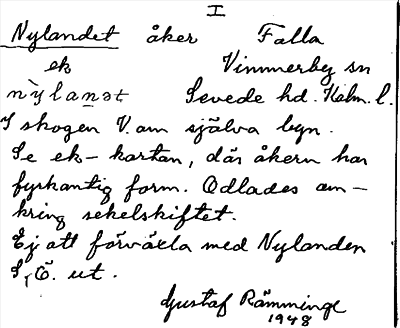 I
Nylandet åker Falla
ek Vimmerby sn
nỳlanət Sevede hd. Kalm. l.
I skogen V. om själva byn.
Se ek-kartan, där åkern har
fyrkantig form. Odlades om-
kring sekelskiftet.
Ej att förväxla med Nylanden
S, Ö. ut.
Gustaf Rämminge
1948